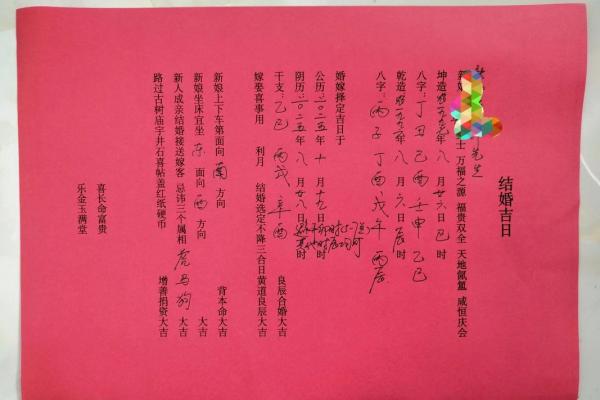 结婚吉日
先生
新 士 万福之源 福贵双全 天地氤氲 咸恒庆会
坤造 一九九 年 八 月 廿六 日 巳 时
八字：丁丑 己酉 壬申 乙巳
乾造 一九九六年 八 月 六 日 辰 时
八字： 丙子 丁酉 戊午 丙辰
婚嫁择定吉日于
公历：二〇二五年 十 月 十九日 时
阴历：二〇二五年 八 月 廿八日 时
干支：乙巳 丙戌 辛酉 良辰合婚大吉
嫁娶喜事用 利月 结婚选定不降三合日黄道良辰大吉
新娘上下车第面向 南 方向 背本命大吉
新娘坐床宜坐 东 面向 西 方向 大吉
新人成亲结婚接送嫁客 忌讳三个属相 虎马狗 大吉
路过古树庙宇井石喜帖盖红纸硬币 增善捐资大吉
喜长命富贵
乐金玉满堂